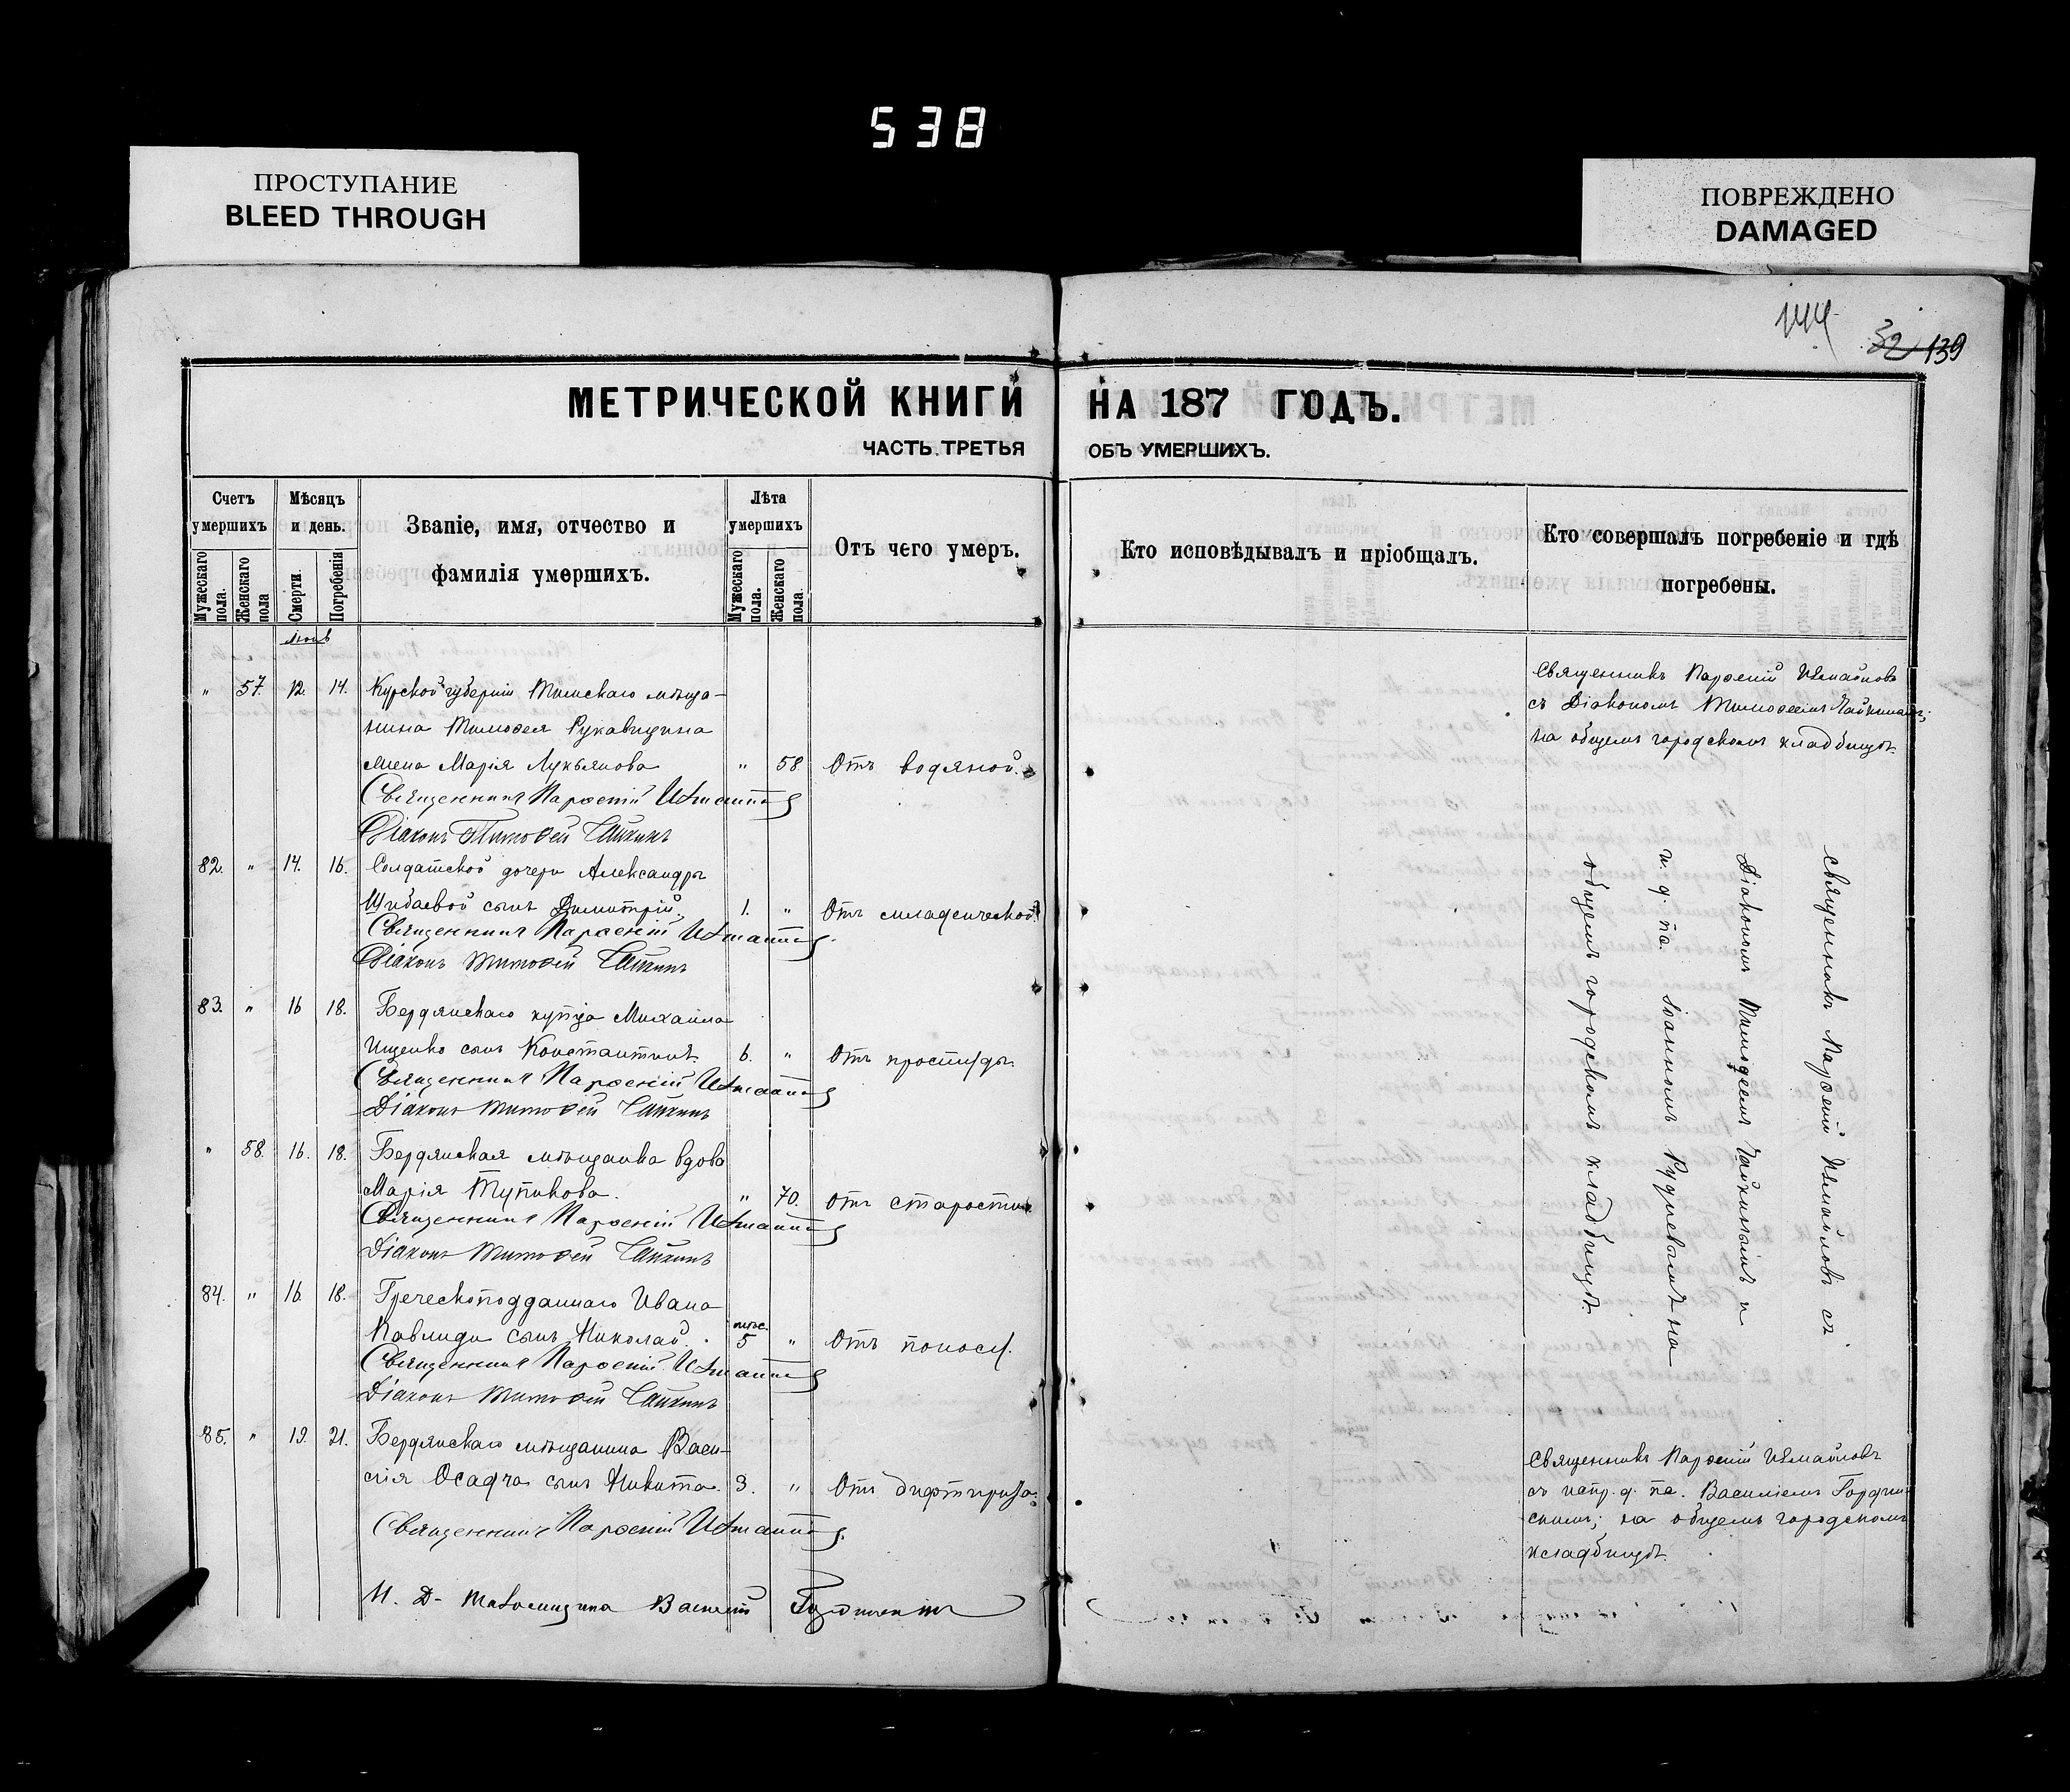 538
ПРОСТУПАНИЕ
BLEED THROUGH
ПОВРЕЖДЕНО
DAMAGED
144
32 139
МЕТРИЧЕСКОЙ КНИГИ НА 187 ГОДЪ.
ЧАСТЬ ТРЕТЬЯ ОБЪ УМЕРШИХЪ.
Счетъ умершихъ
Мужескаго пола.
Женскаго пола
Мѣсяцъ и день.
Смерти.
Погребенія
Званіе, имя, отчество и
фамилія умершихъ.
Лѣта умершихъ
Мужескаго пола.
Женскаго пола.
Отъ чего умеръ.
Кто исповѣдывалъ и пріобщалъ.
Кто совершалъ погребеніе и гдѣ
погребены.
" 57. 12. 14. Курской губерніи Тимскаго мѣща-
нина Тимоѳея Рукавицина
жена Марія Лукьянова " 58 Отъ водяной.
Священникъ Парѳеній Измаиловъ
Діаконъ Тимоѳей Чайкинъ
Священникъ Парѳеній Измайловъ
съ Діакономъ Тимоѳеемъ Чайкинымъ;
на общемъ городскомъ кладбищѣ.
82. " 14. 16. Солдатской дочери Александры
Шибаевой сынъ Димитрій. 1. " Отъ младенческой
Священникъ Парѳеній Измаиловъ
Діаконъ Тимоѳей Чайкинъ
83. " 16 18. Бердянскаго купца Михаила
Ищенко сынъ Константинъ. 6. " Отъ простуды.
Священникъ Парѳеній Измаиловъ
Діаконъ Тимоѳей Чайкинъ
" 58. 16. 18. Бердянская мѣщанка вдова
Марія Тупикова. " 70. Отъ старости.
Священникъ Парѳеній Измаиловъ
Діаконъ Тимоѳей Чайкинъ
84. " 16. 18. Греческоподданнаго Ивана
Павлиди сынъ Николай. мѣс. 5 " Отъ поноса.
Священникъ Парѳеній Измаиловъ
Діаконъ Тимоѳей Чайкинъ
Священникъ Парѳеній Измайловъ съ
Діакономъ Тимоѳеемъ Чайкинымъ и
и. д. пс. Іоанномъ Рудневымъ на
общемъ городскомъ кладбищѣ.
85. " 19. 21. Бердянскаго мѣщанина Васи-
лія Осадча сынъ Никита. 3. " Отъ дифтирита.
Священникъ Парѳеній Измаиловъ
И. Д. Василій
Священникъ Парѳеній Измайловъ
съ испр. д. пс. Василіемъ Гордин-
скимъ; на общемъ городскомъ
кладбищѣ.